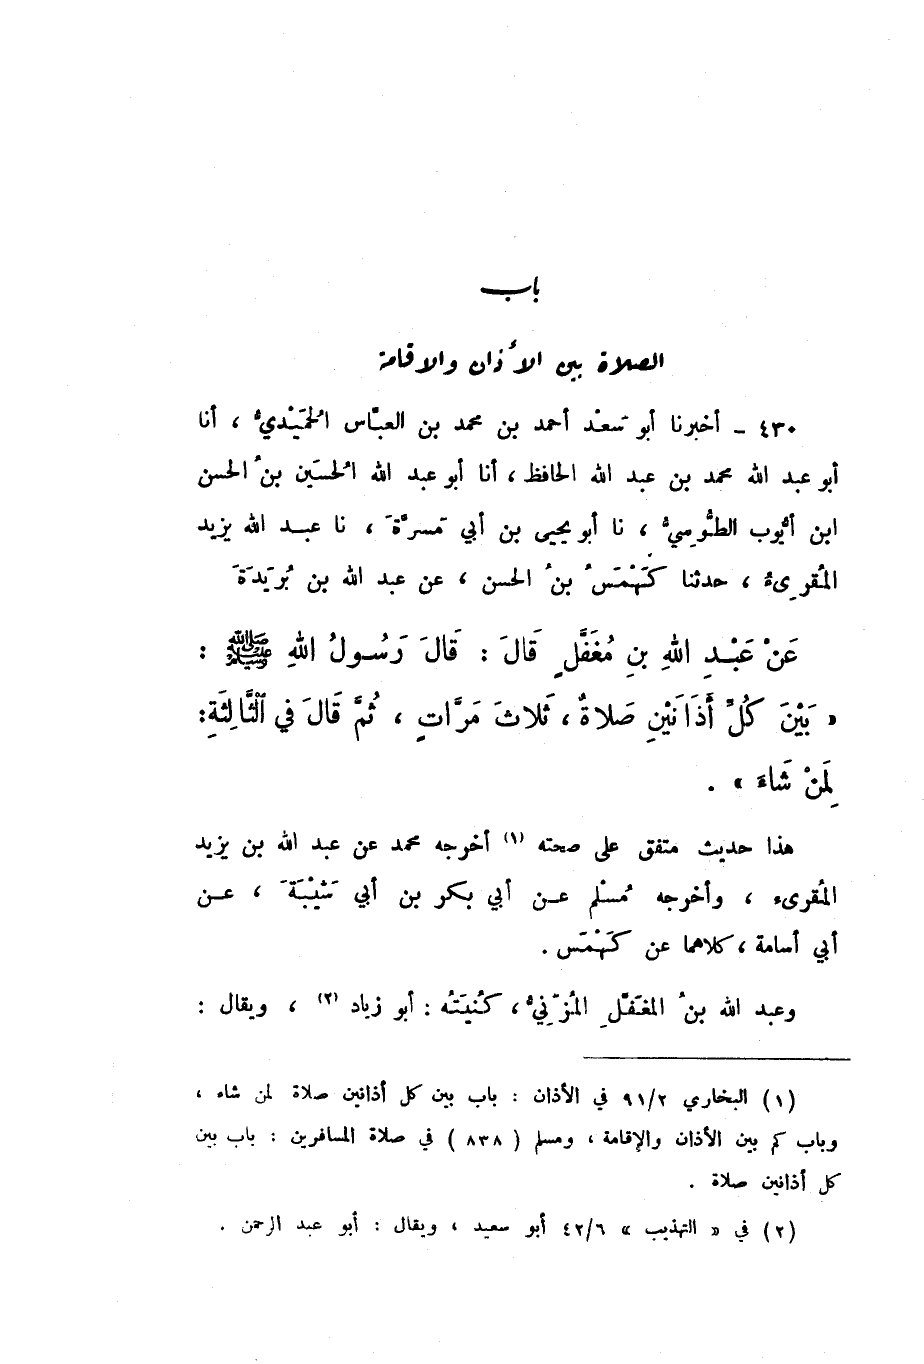 باب
الصلاة بين الأذان والاقامة
٤٣٠ - أخبرنا أبو سَعْد أحمد بن محمد بن العبَّاس الْحَمَيْديُّ ، أنا
أبو عبد الله محمد بن عبد الله الحافظ ، أنا أبو عبد الله الْحسَين بنُ الحسن
ابن أيُّوب الطُّوسِيُّ ، نا أبو يحيى بن أبي مَسرَّةَ ، نا عبد الله يزيد
المُقرِىءُ ، حدثنا كَهْمَسُ بنُ الحسن ، عن عبد الله بن بُرَيدَةَ
عَنْ عَبْدِ اللهِ بنِ مُغَفَّلٍ قَالَ : قَالَ رَسُولُ اللهِ ﷺ :
« بَيْنَ كُلِّ أَذَانَيْنِ صَلاةٌ ، ثَلاثَ مَرَّاتٍ ، ثُمَّ قَالَ في الثَّالِثَةِ:
لِمَنْ شَاءَ » .
هذا حديث متفق على صحته (١) أخرجه محمد عن عبد الله بن يزيد
المُقرىء ، وأخرجه مُسْلم عن أبي بكر بن أبي شَيْبَةَ ، عن
أبي أسامة ، كلاهما عن كَهْمَس .
وعبد الله بنُ المغَفَّلِ المُزَنيُّ ، كُنيَتُه : أبو زياد (٢) ، ويقال :
(١) البخاري ٩١/٢ في الأذان : باب بين كل أذانين صلاة لمن شاء ،
وباب كم بين الأذان والإقامة ، ومسلم ( ٨٣٨ ) في صلاة المسافرين : باب بين
كل أذانين صلاة .
(٢) في « التهذيب » ٤٢/٦ أبو سعيد ، ويقال : أبو عبد الرحمن .